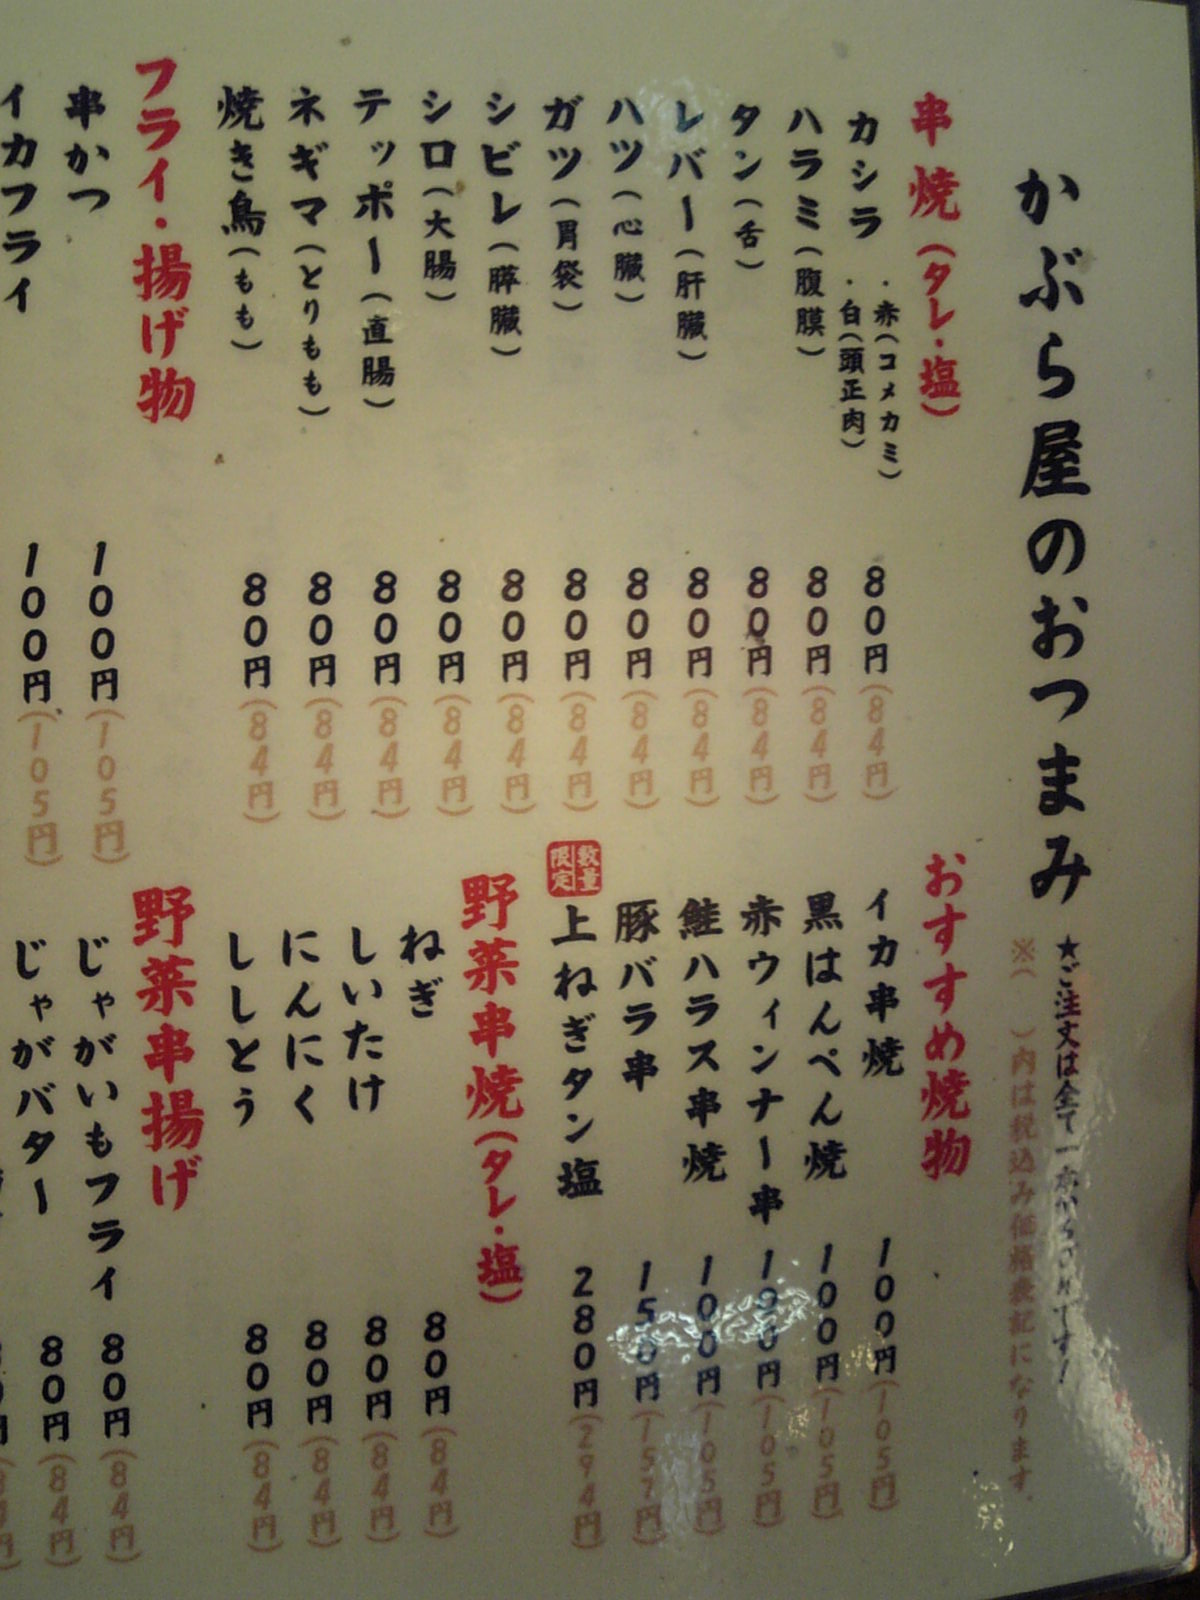 かぶら屋のおつまみ
★ご注文は全て一本からOKです!
※( )内は税込み価格表記になります。
串焼(タレ・塩)
カシラ ・赤(コメカミ) ・白(頭正肉) 80円(84円)
ハラミ(腹膜) 80円(84円)
タン(舌) 80円(84円)
レバー(肝臓) 80円(84円)
ハツ(心臓) 80円(84円)
ガツ(胃袋) 80円(84円)
シビレ(膵臓) 80円(84円)
シロ(大腸) 80円(84円)
テッポー(直腸) 80円(84円)
ネギマ(とりもも) 80円(84円)
焼き鳥(もも) 80円(84円)
フライ・揚げ物
串かつ 100円(105円)
イカフライ 100円(105円)
おすすめ焼物
イカ串焼 100円(105円)
黒はんぺん焼 100円(105円)
赤ウィンナー串 100円(105円)
鮭ハラス串焼 100円(105円)
豚バラ串 150円(157円)
数量限定 上ねぎタン塩 280円(294円)
野菜串焼(タレ・塩)
ねぎ 80円(84円)
しいたけ 80円(84円)
にんにく 80円(84円)
ししとう 80円(84円)
野菜串揚げ
じゃがいもフライ 80円(84円)
じゃがバター 80円(84円)